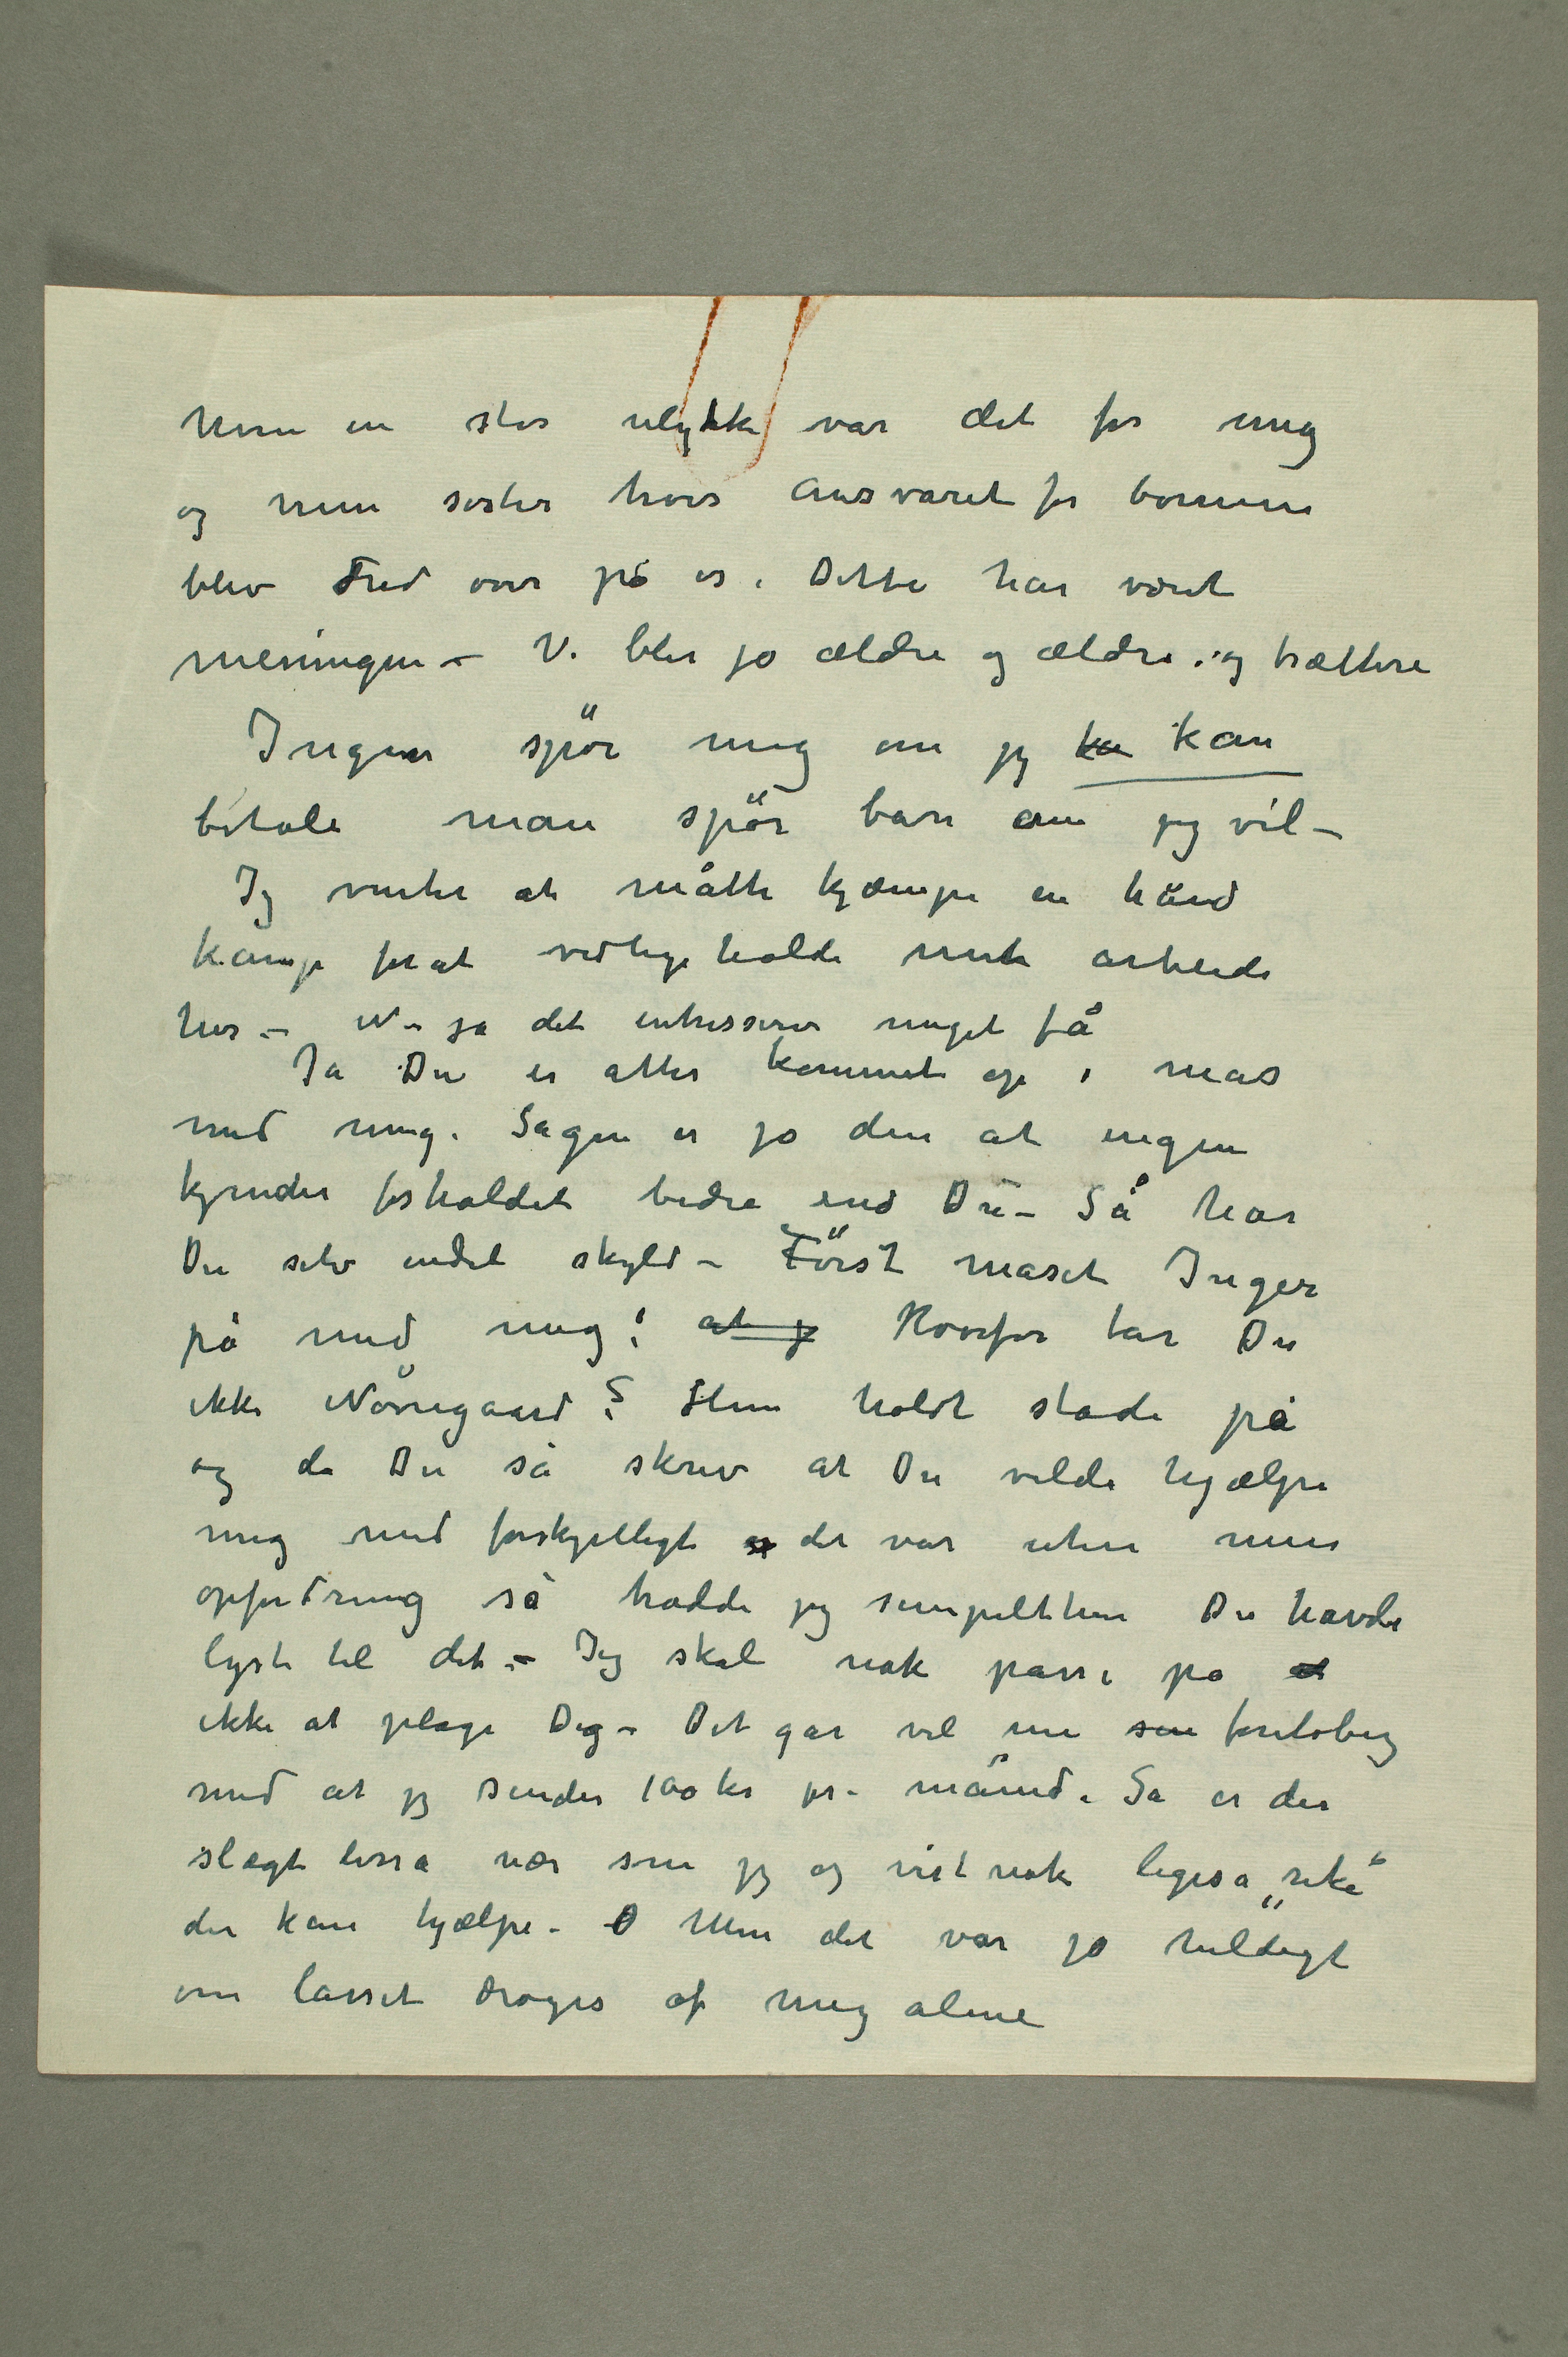 Men en stor ulykke var det for mig
og min søster hvis ansvaret for børnene
blev ført over på os. Dette har været
meningen – Vi blir jo ældre og ældre og trættere
Ingen spör mig om jeg ka kan
betale man spör bare om jeg vil –
Jeg venter at måtte kjæmpe en hård
kamp for at vedlige holde mit arbeide
her – N – ja det interesserer meget få
Ja Du er atter kommet op i mas
med mig. Sagen er jo den at ingen
kjender forholdet bedre end Du – Så har
Du selv endel skyld – Först maset Inger
på med mig: at j Hvorfor tar Du
ikke Nörregaard? Hun holdt stadi på
og da Du så skrev at Du vilde hjælpe
mig med forskjelligt og det var uten min
opfordring så trodde jeg simpelthen Du havde
lyst til det. – Jeg skal nok passe på at
ikke at plage Dig – Det går vel nu foreløbig
med at jeg sender 100 kr pr. måned. Så er der
slægt lisså nær som jeg og vist nok ligeså „rike"
der kan hjælpe. – D Men det var jo heldigt
om lasset droges af mig alene